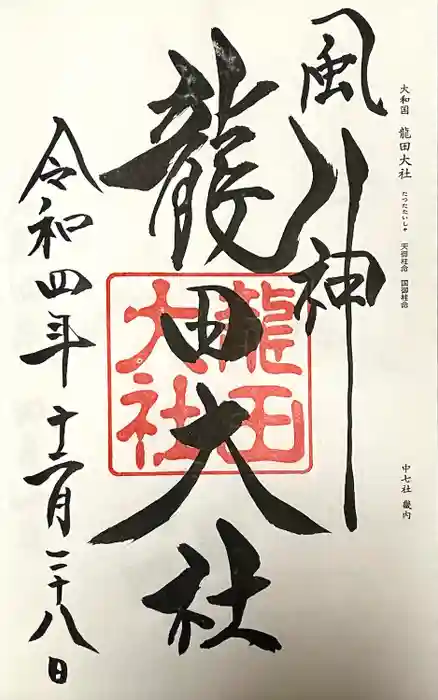 大和国 龍田大社 たつたたいしゃ 天御柱命 国御柱命
中七社 畿内
風神
龍田大社
龍田大社
令和四年十二月二十八日